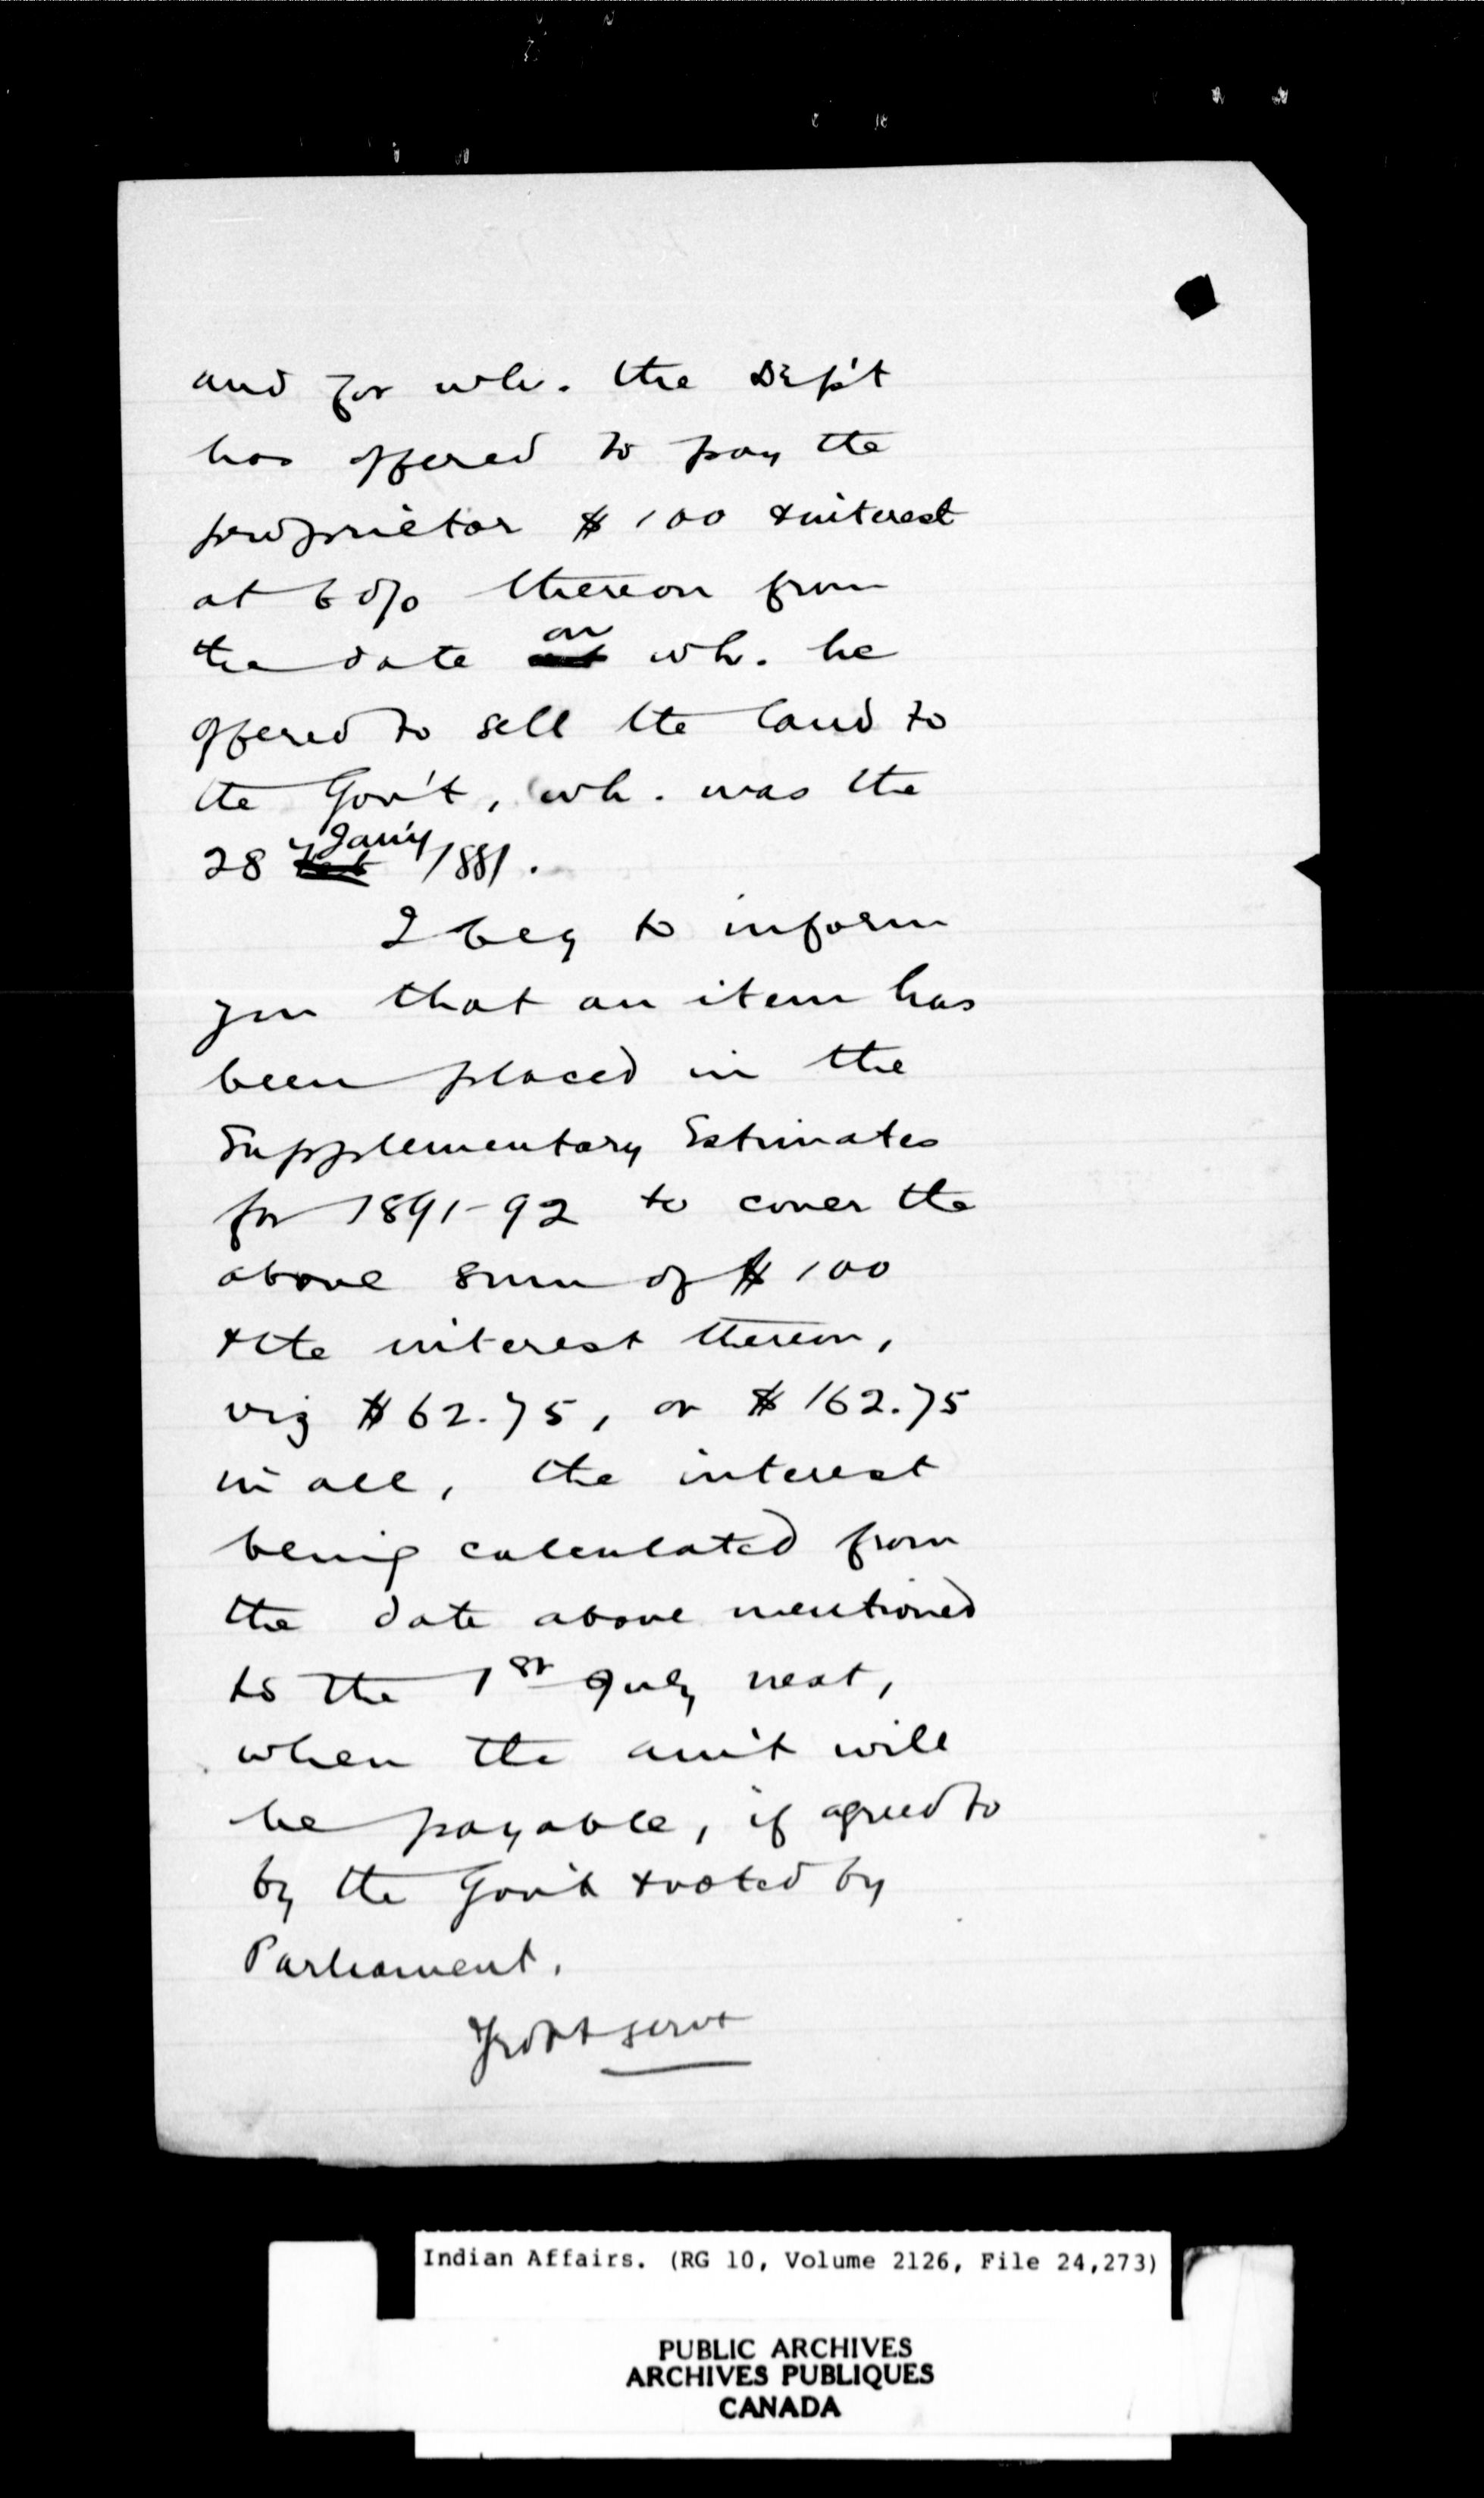 and for wh. the Dep't
has offered to pay the
proprietor $100 & interest
at 6 o/o thereon from
the date on wh. he
offered to sell the land to
the Gov't, wh. was the
28 Jan'y /1881.
I beg to inform
you that an item has
been placed in the
Supplementary Estimates
for 1891-92 to cover the
above sum of $100
& the interest thereon,
viz $62.75, or $162.75
in all, the interest
being calculated from
the date above mentioned
to the 1st July next,
when the am't will
be payable, if agreed to
by the Gov't & voted by
Parliament.
Yr obt servt
Indian Affairs. (RG 10, Volume 2126, File 24,273)
PUBLIC ARCHIVES
ARCHIVES PUBLIQUES
CANADA